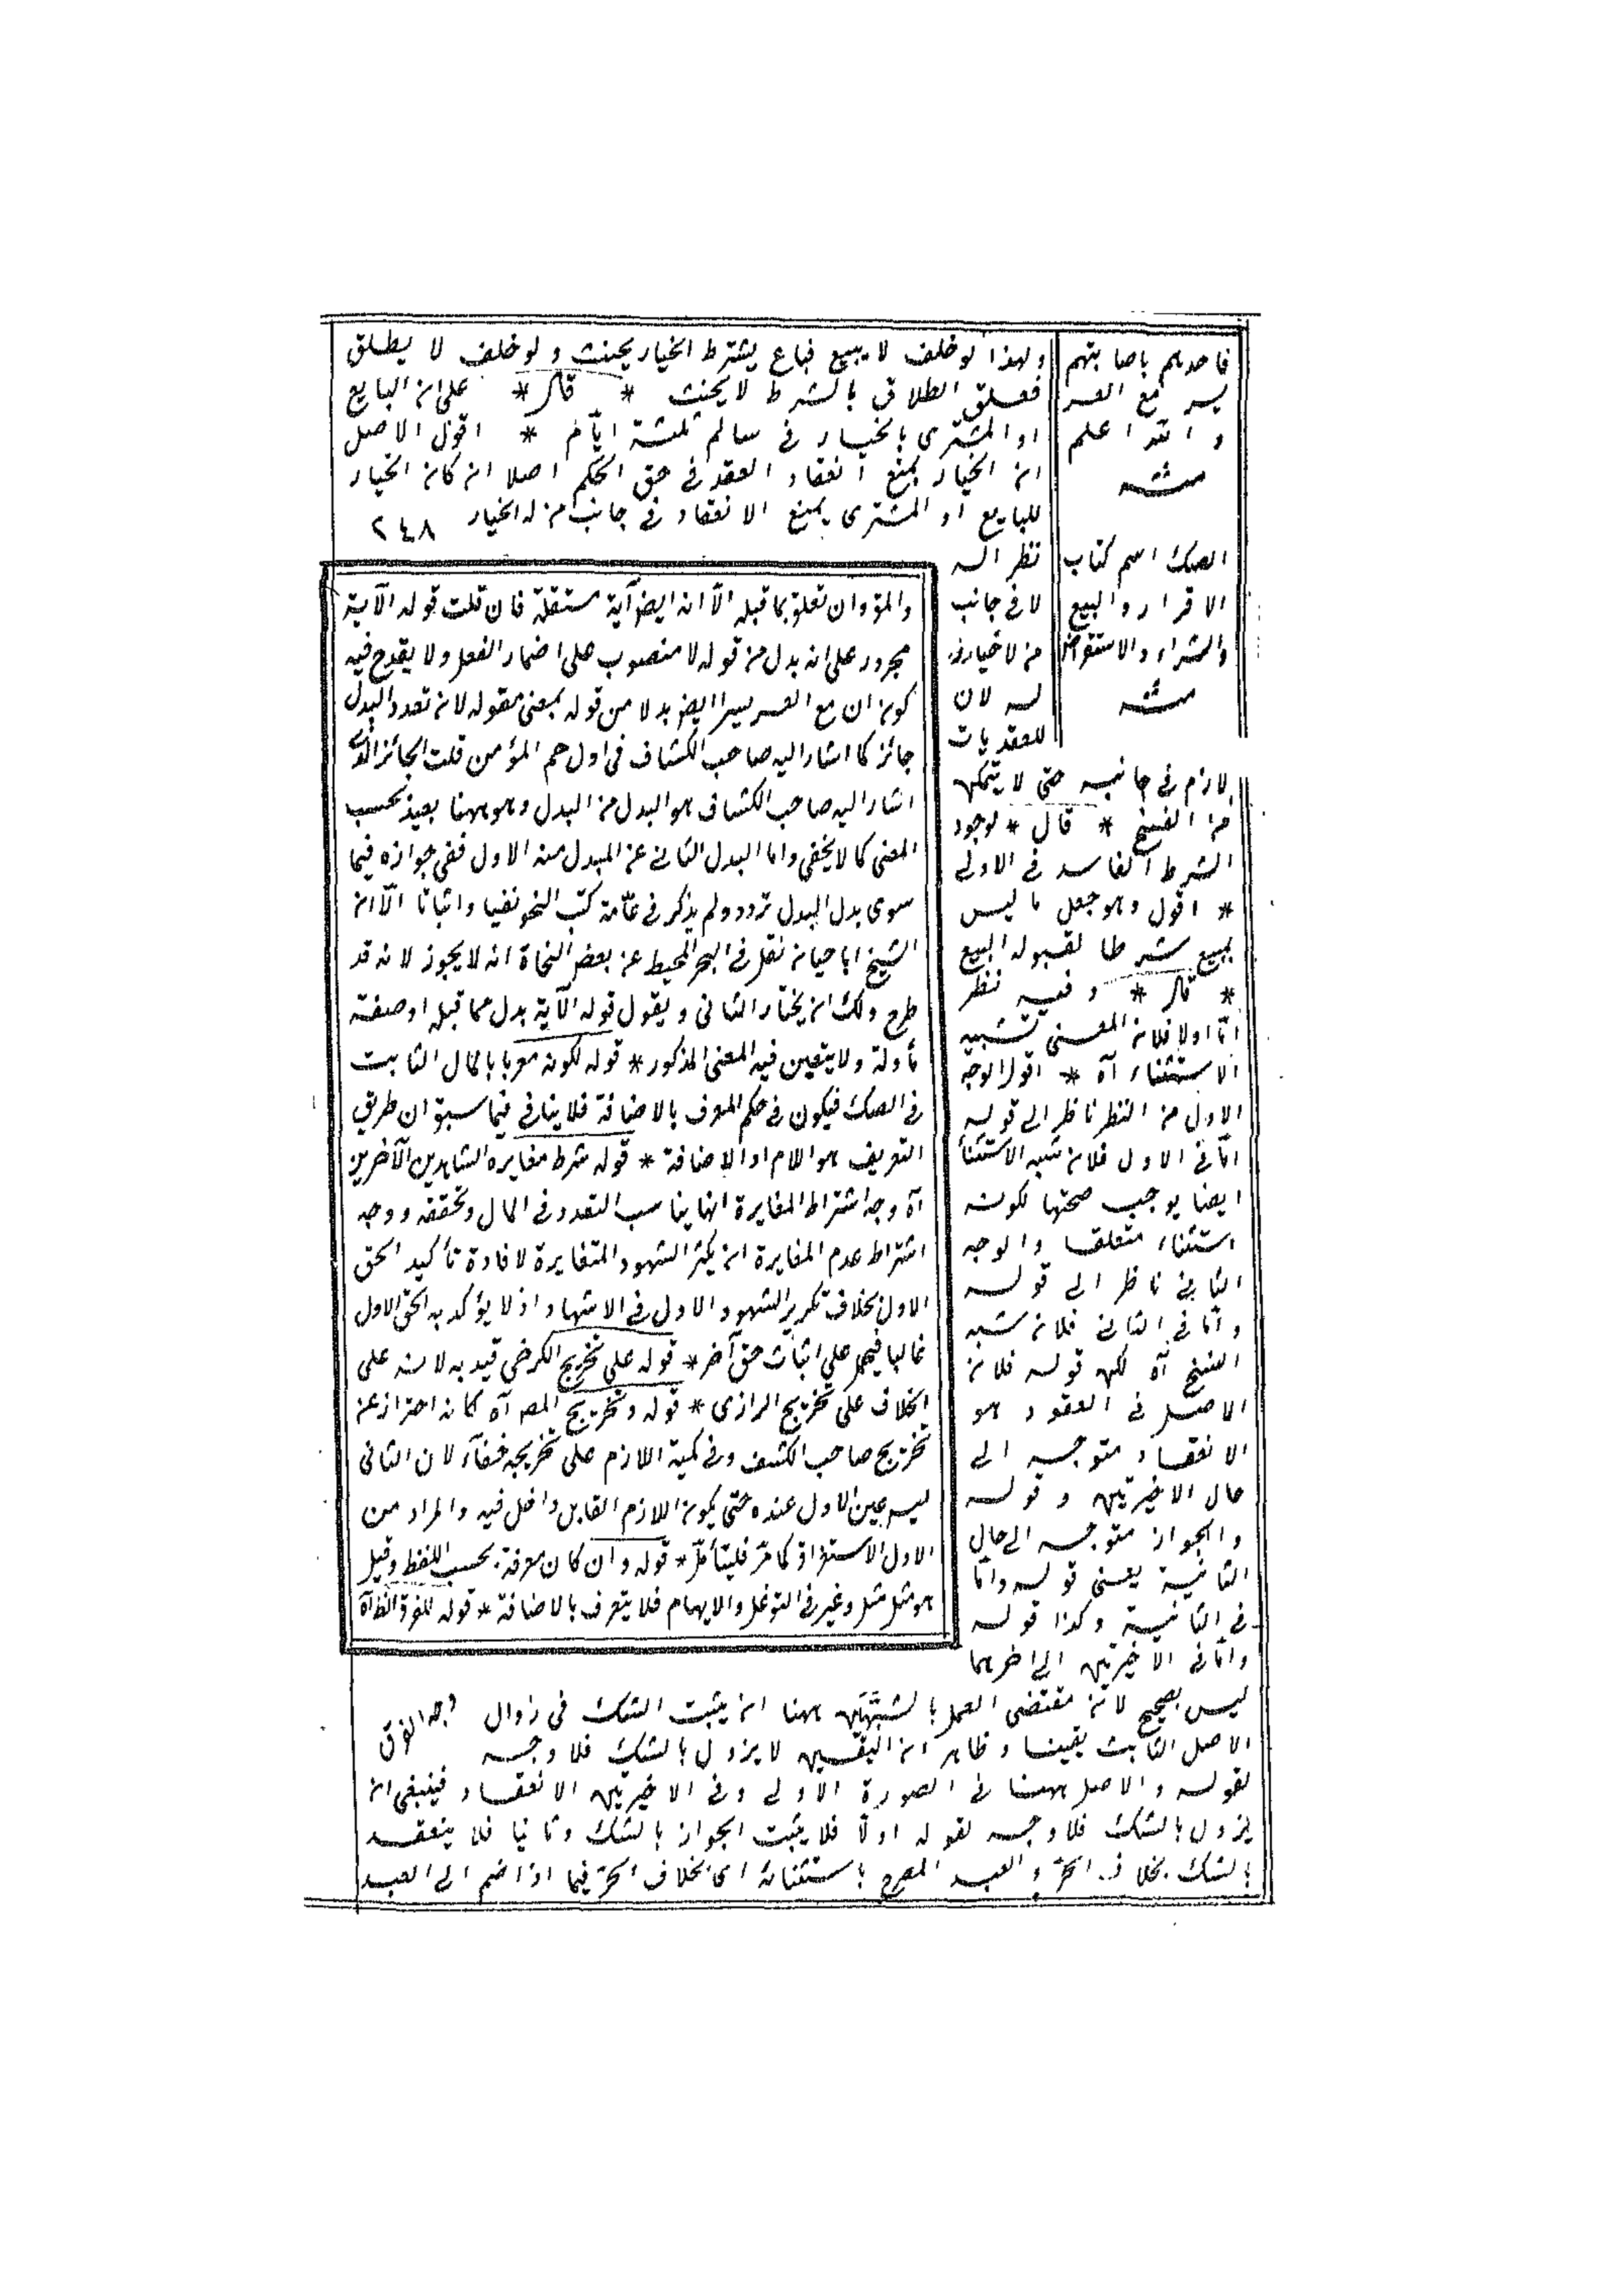 ولهذا لو خلف لا يبيع فباع بشرط الخيار يحنث ولو خلف لا يطلق
فعلق الطلاق بالشرط لا يحنث * قال * على ان البايع
او المشترى بالخيار فى سالم ثلثة ايام * اقول الاصل
ان الخيار يمنع انعقاد العقد فى حق الحكم اصلا ان كان الخيار
للبايع او المشترى يمنع الانعقاد فى جانب من له الخيار ٢٤٨
نظر اله
لا فى جانب
من لا خيار
له لان
للعقد بات
لازم فى جانبه حتى لا يتمكن
من الفسخ * قال * لوجود
الشرط الفاسد فى الاولى
* اقول وهو جعل ما ليس
بمبيع شرطا لقبوله البيع
* قال * وفيه نظر
اما اولا فلان المعنى تشبيه
الاستثناء آه * اقول الوجه
الاول من النظر ناظر الى قوله
اما فى الاول فلان شبه الاستثناء
ايضا يوجب صحتها لكونه
استثناء متعلقا والوجه
الثانى ناظر الى قوله
واما فى الثانى فلان شبه
الفسخ آه لكن قوله فلان
الاصل فى العقود هو
الانعقاد متوجه الى
حال الاخيرتين وقوله
والجواز متوجه الى حال
الثانية يعنى قوله واما
فى الثانية وكذا قوله
واما فى الاخيرتين الى اخرهما
ليس بصحيح لان مقتضى العمل بالشبهين ههنا ان يثبت الشك فى زوال وجه الفرق
الاصل الثابت يقينا وظاهر ان اليقين لا يزول بالشك فلا وجه
لقوله والاصل ههنا فى الصورة الاولى وفى الاخيرتين الانعقاد فينبغى ان
يزول بالشك فلا وجه لقوله اولا فلا يثبت الجواز بالشك وثانيا فلا ينعقد
بالشك بخلاف الحر والعبد المصرح باستثنائه اى بخلاف الحر فيما اذا ضم الى العبد
فاحدهم باصابتهم
يسر مع العسر
والله اعلم
منه
الصك اسم كتاب
الاقرار والبيع
والشراء والاستقراض
منه
والمؤ وان تعلق بما قبله الا انه ايضا آية مستقلة فان قلت قوله الآية
مجرور على انه بدل من قوله لا منصوب على اضمار الفعل ولا يقدح فيه
كون ان مع العسر يسرا ايضا بدلا من قوله بمعنى مقوله لان تعدد البدل
جائز كما اشار اليه صاحب الكشاف فى اول حم المؤمن قلت الجائز الذى
اشار اليه صاحب الكشاف هو البدل من البدل وهو ههنا بعيد بحسب
المعنى كما لا يخفى واما البدل الثانى عن المبدل منه الاول ففى جوازه فيما
سوى بدل البدل تردد ولم يذكر فى عامة كتب النحو نفيا واثباتا الا ان
الشيخ ابا حيان نقل فى البحر المحيط عن بعض النحاة انه لا يجوز لانه قد
طرح ولك ان يختار الثانى ويقول قوله الآية بدل مما قبله او صفة
مأولة ولا يتعين فيه المعنى المذكور * قوله لكونه معربا بالمال الثابت
فى الصك فيكون فى حكم المعرف بالاضافة فلا ينافى فيما سبق ان طريق
التعريف هو اللام او الاضافة * قوله شرط مغايرة الشاهدين الآخرين
آه وجه اشتراط المغايرة انها يناسب التعدد فى المال وتحققه ووجه
اشتراط عدم المغايرة ان يكثر الشهود المتغايرة لافادة تأكيد الحق
الاول بخلاف تكرير الشهود الاول فى الاشهاد اذ لا يؤكد به الحق الاول
غالبا فيحمل على اثبات حق آخر * قوله على تخريج الكرخى قيد به لانه على
الخلاف على تخريج الرازى * قوله وتخريج المص آه كانه احتراز عن
تخريج صاحب الكشف وفى كمية اللازم على تخريجه خفاء لان الثانى
ليس عين الاول عنده حتى يكون اللازم القابل داخل فيه والمراد من
الاول الاستغراق كما مر فليتأمل * قوله وان كان معرفة بحسب اللفظ وقيل
هو مثل مثل وغير فى التوغل والابهام فلا يتعرف بالاضافة * قوله للفرق الظ آه